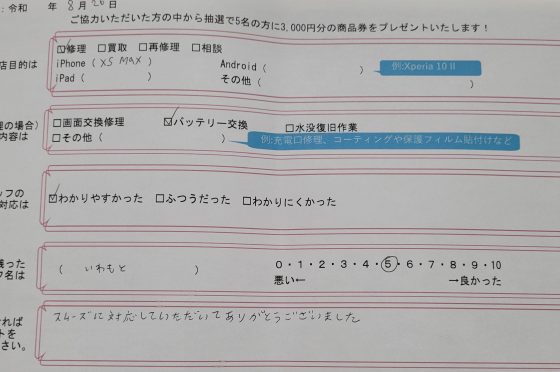 ：令和　年 8月20日
ご協力いただいた方の中から抽選で5名の方に3,000円分の商品券をプレゼントいたします！
☑修理　□買取　□再修理　□相談
店目的は
iPhone（ XS MAX ）　Android（　　　）　例:Xperia 10 II
iPad（　　　）　その他（　　　）
理の場合）
内容は
□画面交換修理　☑バッテリー交換　□水没復旧作業
□その他（　　　）　例:充電口修理、コーティングや保護フィルム貼付けなど
ッフの
対応は
☑わかりやすかった　□ふつうだった　□わかりにくかった
残った
フ名は
（　いわもと　）
0・1・2・3・4・5・6・7・8・9・10
悪い←　→良かった
ければ
トを
さい。
スムーズに対応していただいてありがとうございました